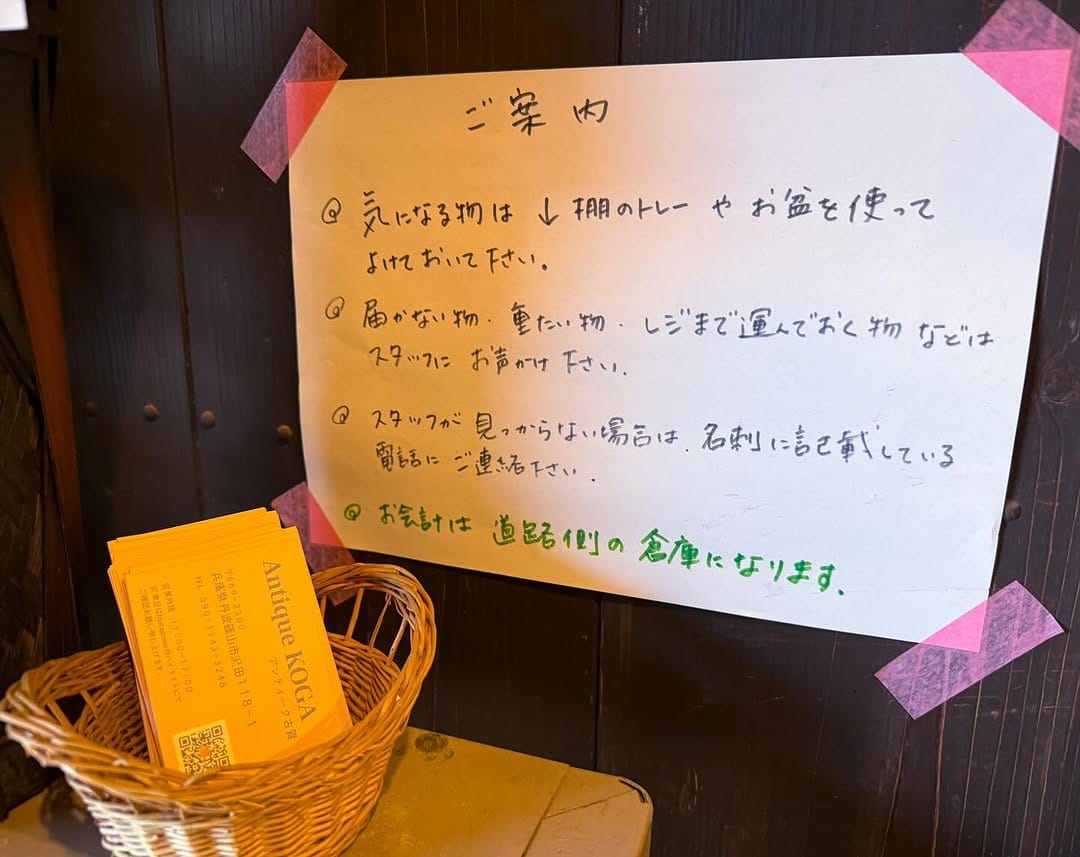 ご案内
◎ 気になる物は ↓ 棚のトレー や お盆を使って
よけておいて下さい。
◎ 届かない物・重たい物・レジまで運んでおく物 などは
スタッフに お声がけ 下さい.
◎ スタッフが 見つからない場合は、名刺に記載している
電話に ご連絡下さい.
◎ お会計は 道路側の 倉庫になります.
Antique KOGA
アンティーク古賀
〒669-2300
兵庫県丹波篠山市沢田118-1
TEL 090-1143-8248
営業時間 11:00-17:00
営業日はInstagramのハイライトにて
ご確認お願い申し上げます。